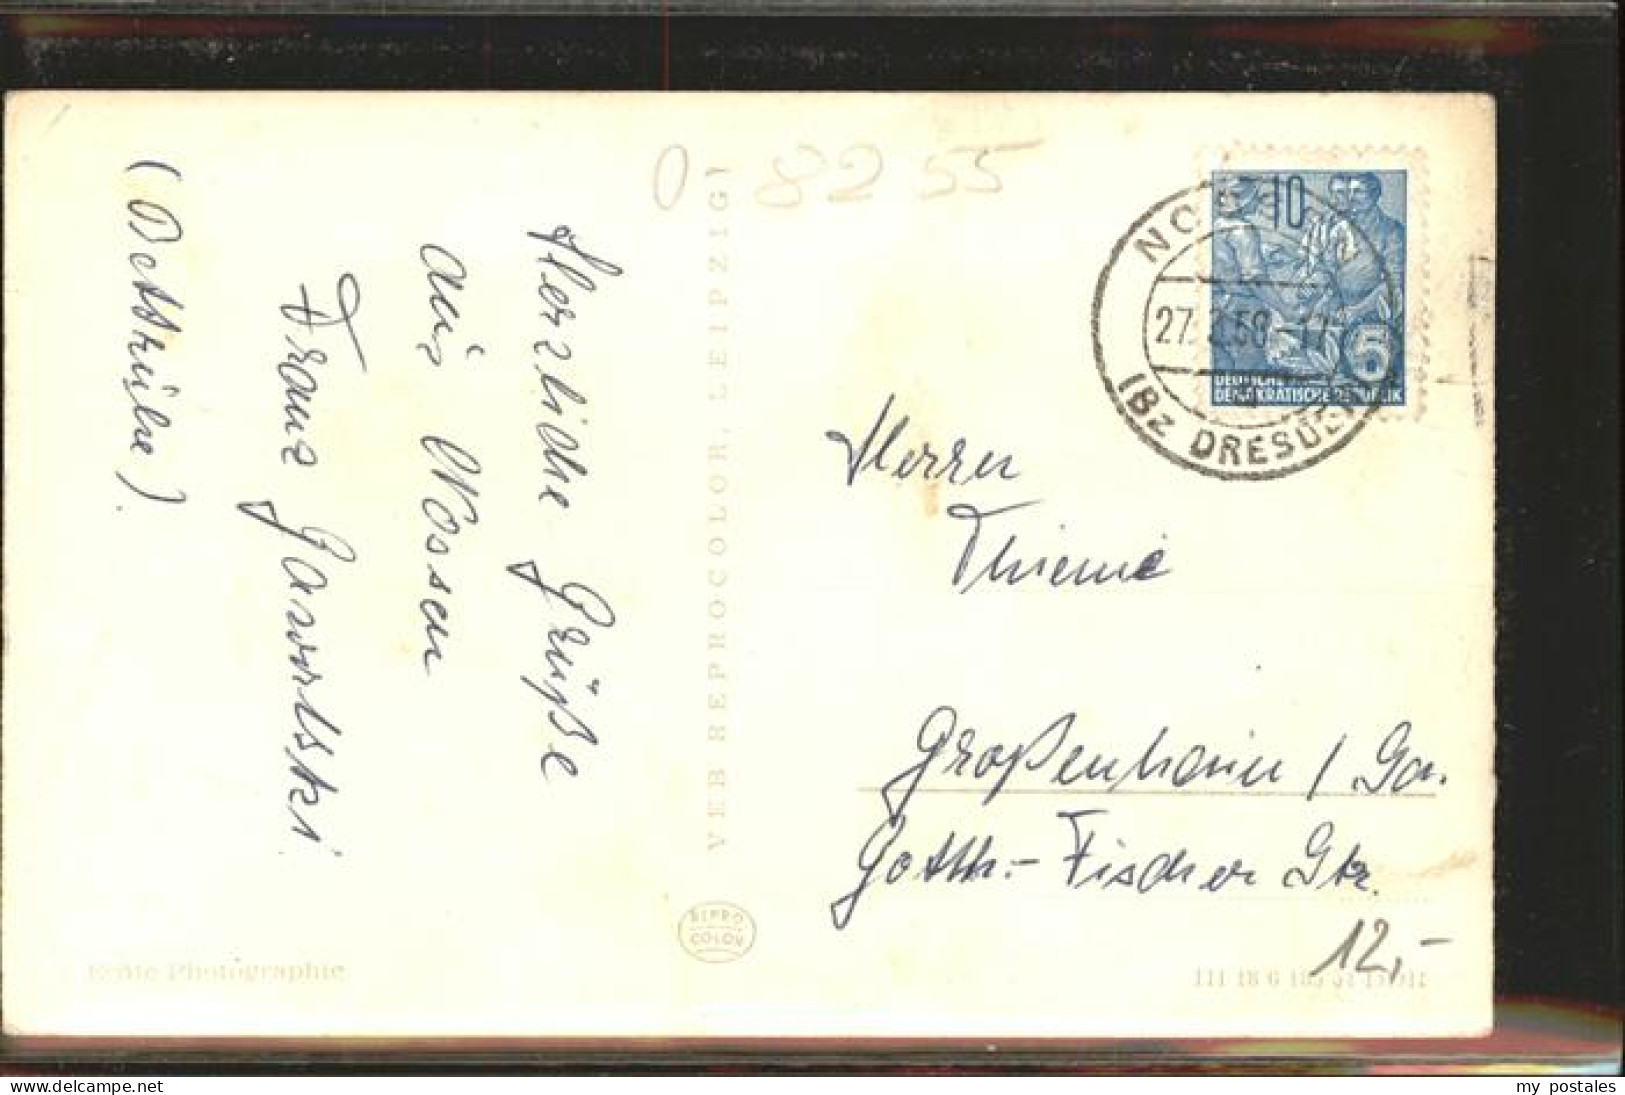 0 8255
(Bettsäule)
Herzliche Grüße
aus Nossen
VEB REPROCOLOR, LEIPZIG)
REPRO
COLOR
Echte Photographie
10
5
DEUTSCHE
DEMOKRATISCHE REPUBLIK
NOSSEN
27. .58-17
(Bz DRESDEN)
Herrn
Thieme
Großenhain / Sa.
Gotth.- Fischer Str.
12,-
III 18 G
delcampe.net
my_postales